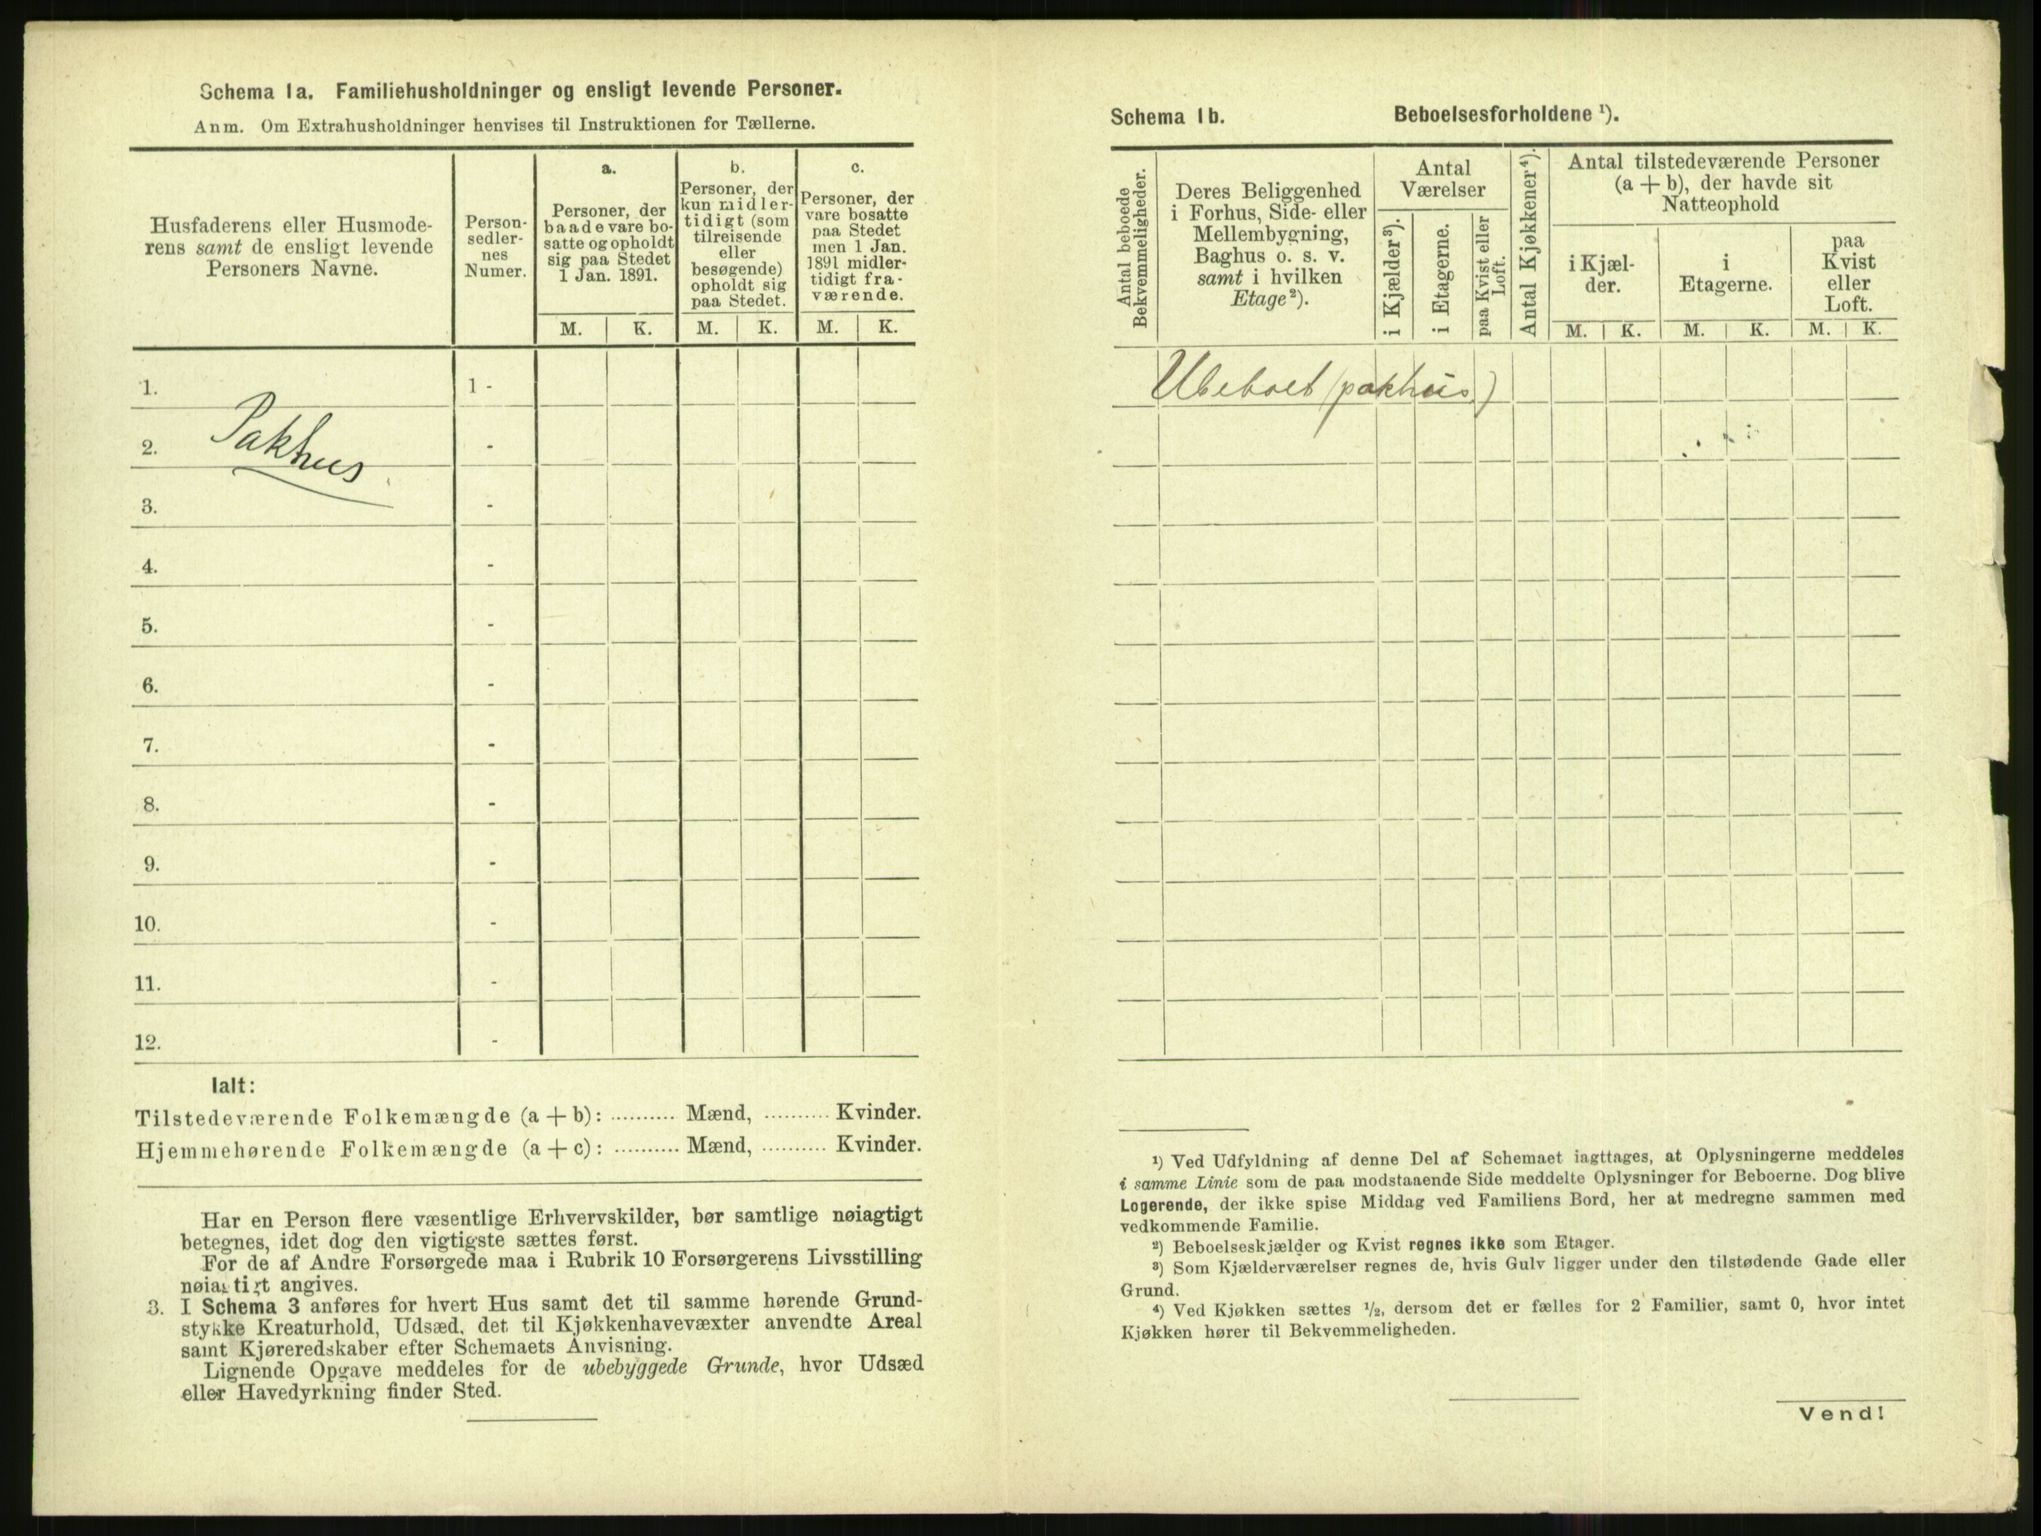 Schema 1a. Familiehusholdninger og ensligt levende Personer.
Anm. Om Extrahusholdninger henvises til Instruktionen for Tællerne.
Husfaderens eller Husmode-
rens samt de ensligt levende
Personers Navne.
Person-
sedler-
nes
Numer.
a.
Personer, der
baade vare bo-
satte og opholdt
sig paa Stedet
1 Jan. 1891.
b.
Personer, der
kun midler-
tidigt (som
tilreisende
eller
besøgende)
opholdt sig
paa Stedet.
c.
Personer, der
vare bosatte
paa Stedet
men 1 Jan.
1891 midler-
tidigt fra-
værende.
M. K. M. K. M. K.
1. 1 -
2. Pakhus -
3. -
4. -
5. -
6. -
7. -
8. -
9. -
10. -
11. -
12. -
Ialt:
Tilstedeværende Folkemængde (a + b): .......... Mænd, .......... Kvinder.
Hjemmehørende Folkemængde (a + c): .......... Mænd, .......... Kvinder.
Har en Person flere væsentlige Erhvervskilder, bør samtlige nøiagtigt
betegnes, idet dog den vigtigste sættes først.
For de af Andre Forsørgede maa i Rubrik 10 Forsørgerens Livsstilling
nøiagtigt angives.
3. I Schema 3 anføres for hvert Hus samt det til samme hørende Grund-
stykke Kreaturhold, Udsæd, det til Kjøkkenhavevæxter anvendte Areal
samt Kjøreredskaber efter Schemaets Anvisning.
Lignende Opgave meddeles for de ubebyggede Grunde, hvor Udsæd
eller Havedyrkning finder Sted.
Schema 1b. Beboelsesforholdene ¹).
Antal beboede
Bekvemmeligheder.
Deres Beliggenhed
i Forhus, Side- eller
Mellembygning,
Baghus o. s. v.
samt i hvilken
Etage²).
Antal
Værelser
i Kjælder³).
i Etagerne.
paa Kvist eller
Loft.
Antal Kjøkkener⁴).
Antal tilstedeværende Personer
(a + b), der havde sit
Natteophold
i Kjæl-
der.
i
Etagerne.
paa
Kvist
eller
Loft.
M. K. M. K. M. K.
Ubeboet (pakhus)
¹) Ved Udfyldning af denne Del af Schemaet iagttages, at Oplysningerne meddeles
i samme Linie som de paa modstaaende Side meddelte Oplysninger for Beboerne. Dog blive
Logerende, der ikke spise Middag ved Familiens Bord, her at medregne sammen med
vedkommende Familie.
²) Beboelseskjælder og Kvist regnes ikke som Etager.
³) Som Kjælderværelser regnes de, hvis Gulv ligger under den tilstødende Gade eller
Grund.
⁴) Ved Kjøkken sættes ¹/₂, dersom det er fælles for 2 Familier, samt 0, hvor intet
Kjøkken hører til Bekvemmeligheden.
Vend!